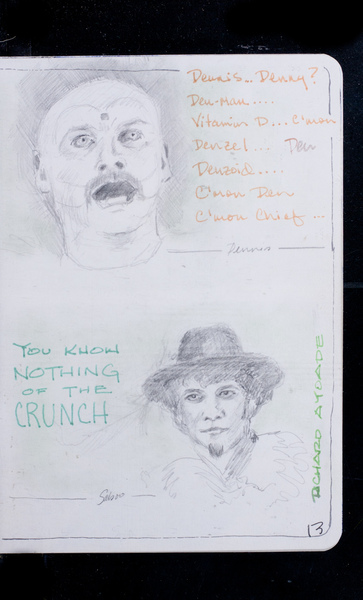 Dennis... Denny?
Den-Man....
Vitamin D... C'mon
Denzel... Den
Denzoid....
C'mon Den
C'mon Chief...
Dennis
YOU KNOW
NOTHING
OF THE
CRUNCH
RICHARD AYOADE
13